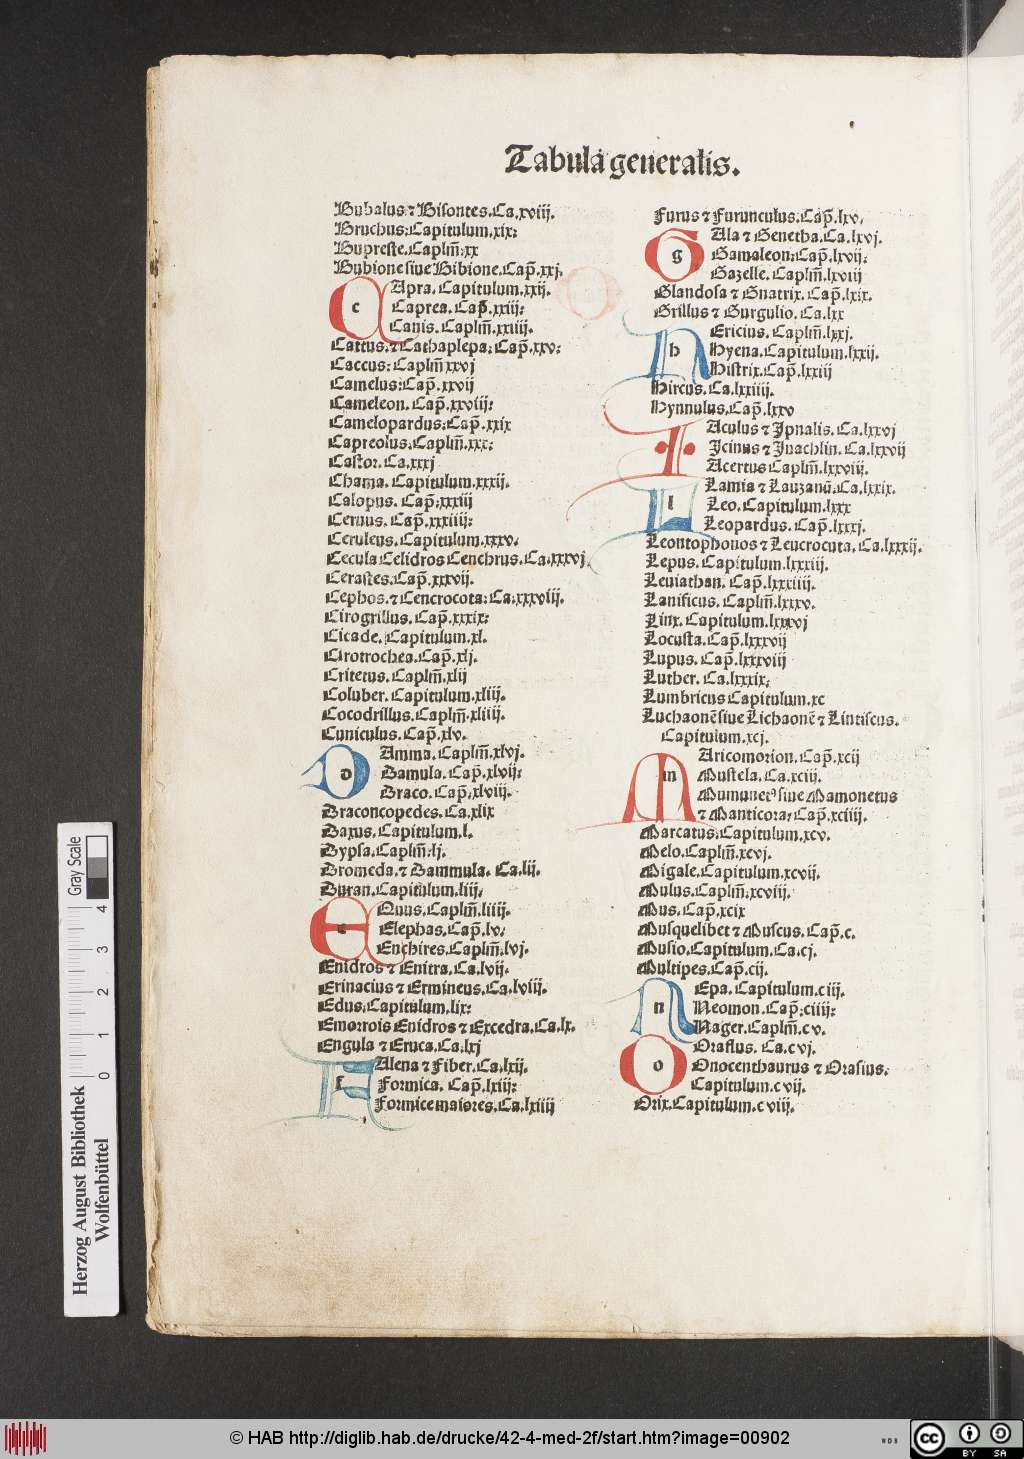 Tabula generalis.
Bubalus ⁊ Bisontes. Ca. xviij.
Bruchus: Capitulum. xix:
Bupreste. Caplm̄: xx
Bubione siue Bibione. Cap̄. xxj.
c Apra. Capitulum. xxij.
Caprea. Cap̄. xxiij:
Canis. Caplm̄. xxiiij.
Cattus. ⁊ Cathaplepa: Cap̄. xxv:
Caccus: Caplm̄ xxvj
Camelus: Cap̄. xxvij
Cameleon. Cap̄. xxviij:
Camelopardus: Cap̄. xxix
Capreolus: Caplm̄. xxx:
Castor. Ca. xxxj
Chama. Capitulum. xxxij.
Calopus. Cap̄: xxxiij
Ceruus. Cap̄. xxxiiij:
Ceruleus. Capitulum. xxxv.
Cecula Celidros Cenchrus. Ca: xxxvj.
Cerastes. Cap̄. xxxvij.
Cephos. ⁊ Cencrocota: Ca: xxxviij.
Cirogrillus. Cap̄. xxxix:
Cicade. Capitulum. xl.
Cirotrochea. Cap̄. xlj.
Critetus. Caplm̄. xlij
Coluber. Capitulum. xliij.
Cocodrillus. Caplm̄. xliiij.
Cuniculus. Cap̄. xlv.
d Amma. Caplm̄. xlvj.
Damula. Cap̄. xlvij:
Draco. Cap̄. xlviij.
Draconcopedes. Ca. xlix
Daxus. Capitulum. l.
Dypsa. Caplm̄: lj.
Dromeda. ⁊ Dammula. Ca. lij.
Duran. Capitulum. liij:
e Quus. Caplm̄. liiij.
Elephas. Cap̄. lv:
Enchires. Caplm̄. lvj.
Enidros ⁊ Enitra. Ca. lvij.
Erinacius ⁊ Ermineus. Ca. lviij.
Edus: Capitulum. lix:
Emorrois Enidros ⁊ Excedra. Ca. lx.
Engula ⁊ Eruca. Ca: lxj
f Alena ⁊ Fiber. Ca. lxij.
Formica. Cap̄. lxiij:
Formice maiores. Ca. lxiiij
Furus ⁊ Furunculus. Cap̄. lxv.
g Ala ⁊ Genetha. Ca. lxvj.
Gamaleon: Cap̄. lxvij:
Gazelle. Caplm̄. lxviij
Glandosa ⁊ Gnatrix. Cap̄. lxix.
Grillus ⁊ Gurgulio. Ca. lxx
h Ericius. Caplm̄. lxxj.
Hyena. Capitulum. lxxij.
Histrix. Cap̄. lxxiij
Hircus. Ca. lxxiiij.
Hynnulus. Cap̄. lxxv
I Aculus ⁊ Ipnalis. Ca. lxxvj
Icinus ⁊ Inachlin. Ca. lxxvij
Acertus Caplm̄. lxxviij.
l Lamia ⁊ Lauzanū. Ca. lxxix.
Leo. Capitulum. lxxx
Leopardus. Cap̄. lxxxj.
Leontophonos ⁊ Leucrocuta. Ca. lxxxij.
Lepus. Capitulum. lxxxiij.
Leuiathan. Cap̄. lxxxiiij.
Lanificus. Caplm̄. lxxxv.
Linx. Capitulum. lxxxvj
Locusta. Cap̄. lxxxvij
Lupus. Cap̄. lxxxviij
Luther. Ca. lxxxix:
Lumbricus Capitulum. xc
Luchaonē siue Lichaonē ⁊ Lintiscus.
Capitulum. xcj.
m Aricomorion. Cap̄. xcij
Mustela. Ca. xciij.
Mumunetꝰ siue Mamonetus
⁊ Manticora: Cap̄. xciiij.
Marcatus: Capitulum. xcv.
Melo. Caplm̄. xcvj.
Migale. Capitulum. xcvij.
Mulus. Caplm̄: xcviij.
Mus. Cap̄. xcix
Musquelibet ⁊ Muscus. Cap̄. c.
Musio. Capitulum. Ca. cj.
Multipes. Cap̄. cij.
n Epa. Capitulum. ciij.
Neomon. Cap̄: ciiij:
Nager. Caplm̄. cv.
o Oraflus. Ca. cvj.
Onocenthaurus ⁊ Orasius.
Capitulum. cvij.
Orix. Capitulum. cviij.
Gray Scale
0 1 2 3 4
Herzog August Bibliothek
Wolfenbüttel
© HAB http://diglib.hab.de/drucke/42-4-med-2f/start.htm?image=00902
WDB
cc BY SA